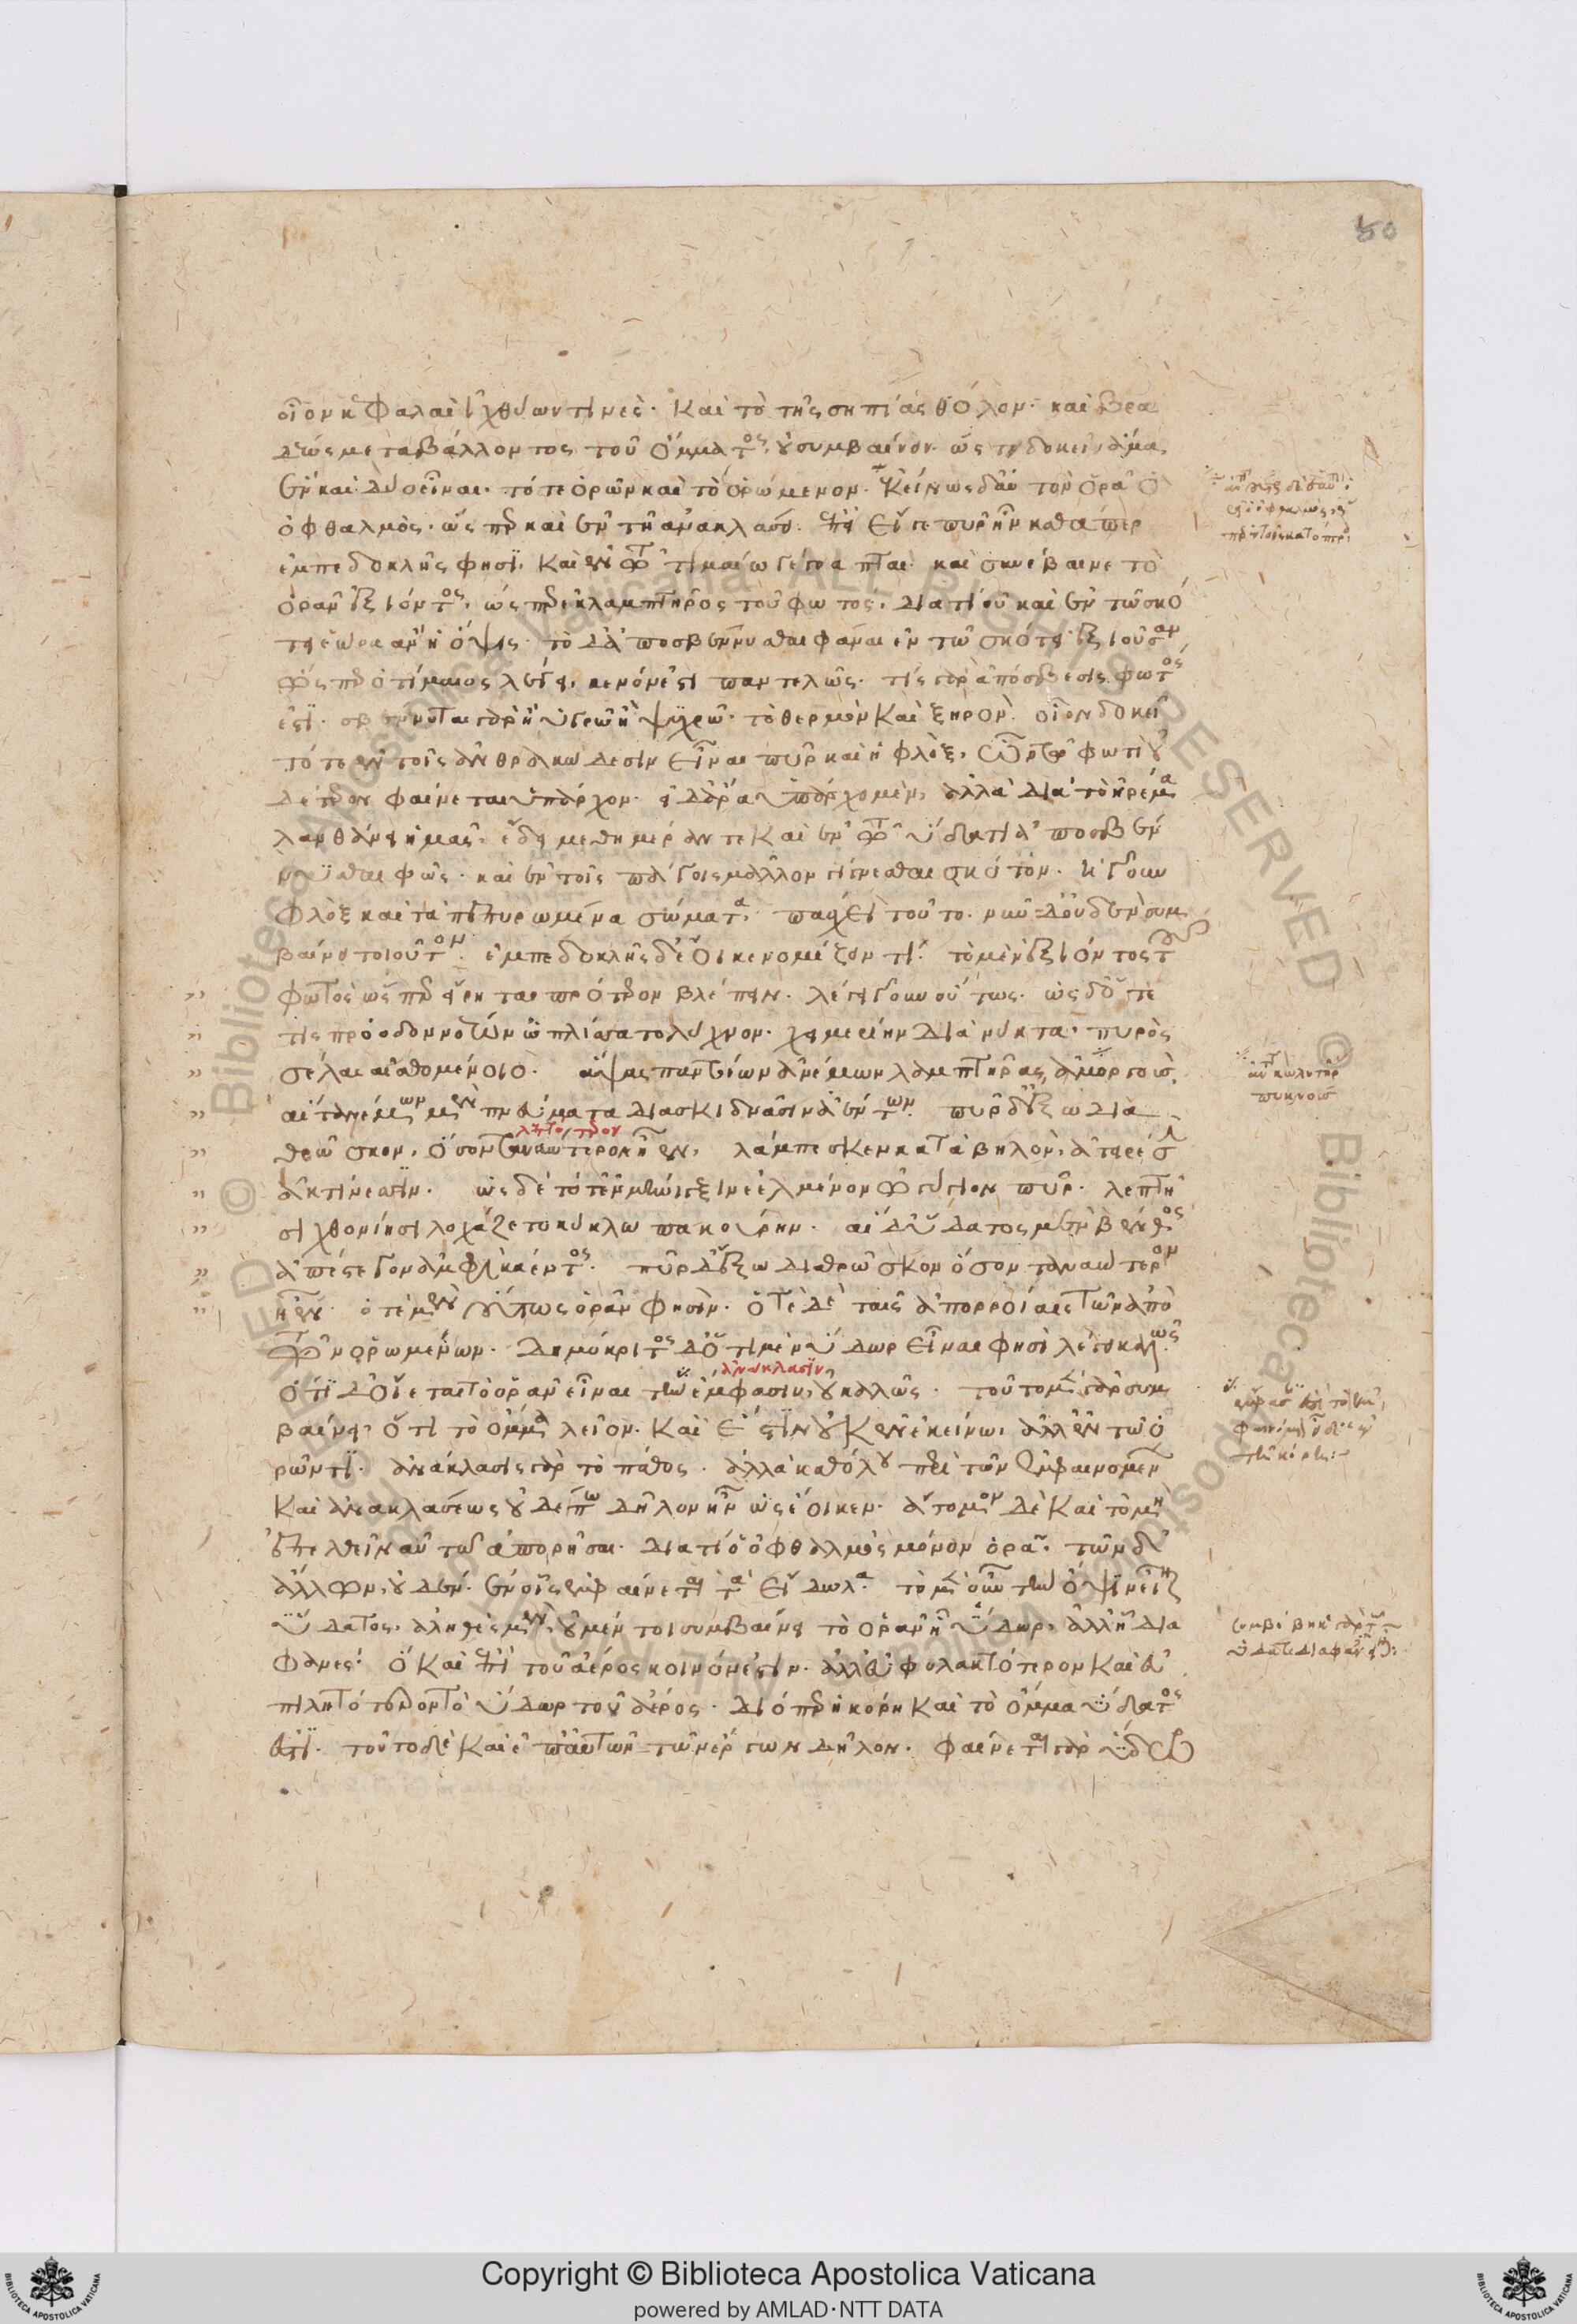 50
οἷον κεφαλαὶ ἰχθύων τινὲς· καὶ τὸ τῆς σηπίας θόλον· καὶ βρα
δέως μεταβάλλοντος τοῦ ὄμματος, οὐ συμβαίνον· ὥστε δοκεῖν ἅμα
ἓν καὶ δύο εἶναι· τό τε ὁρῶν καὶ τὸ ὁρώμενον· ἐκείνως δ' αὐτὸν ὁρᾶ ὁ
ὀφθαλμὸς· ὥσπερ καὶ ἐν τῇ ἀνακλάσει· ἐπεὶ εἴ γε πῦρ ἦν καθάπερ
ἐμπεδοκλῆς φησὶ, καὶ ἐν τῷ τιμαίω γέγραπται· καὶ συνέβαινε τὸ
ὁρᾶν ἐξιόντος, ὥσπερ ἐκ λαμπτῆρος τοῦ φωτός, διατί οὐ καὶ ἐν τῶ σκό
τει ἑώρα ἂν ἡ ὄψις· τὸ δ' ἀποσβέννυσθαι φάναι ἐν τῶ σκότει ἐξιοῦσαν
ὥσπερ ὁ τίμαιος λέγει, κενόν ἐστι παντελῶς· τίς γὰρ ἀπόσβεσις φωτός
ἐστι· σβέννυται γὰρ ἢ ὑγρῶ ἢ ψυχρῶ· τὸ θερμὸν καὶ ξηρὸν· οἷον δοκεῖ
τό τε ἐν τοῖς ἀνθρακώδεσιν εἶναι πῦρ καὶ ἡ φλὸξ, ὧν τῷ φωτὶ οὐ
δέτερον φαίνεται ὑπάρχον· εἰ δ' ἄρα ὑπάρχει μὲν, ἀλλὰ διὰ τὸ ἠρέμα
λανθάνει ἡμᾶς, ἔδει μεθημέραν τε καὶ ἐν τῷ ὕδατι ἀποσβέν
νυσθαι φῶς· καὶ ἐν τοῖς πάγοις μᾶλλον γίνεσθαι σκότον· ἡ γοῦν
φλὸξ καὶ τὰ πεπυρωμένα σώματα, πάσχει τοῦτο· νῦν δ' οὐδὲν συμ
βαίνει τοιοῦτον· ἐμπεδοκλῆς δ' ἔοικε νομίζοντι· τὸ μὲν ἐξιόντος τοῦ
φωτὸς ὥσπερ εἴρηται πρότερον βλέπειν· λέγει γοῦν οὕτως· ὡς δ' ὅτε
τις πρόοδον νοέων ὡπλίσατο λύχνον· χειμερίην διὰ νύκτα· πυρὸς
σέλας αἰθομένοιο· ἅψας παντοίων ἀνέμων λαμπτῆρας ἀμοργούς,
αἵ τ' ἀνέμων μὲν πνεύματα διασκιδνᾶσιν ἀέντων· πῦρ δ' ἔξω δια
λεπτότερον
θρῶσκον, ὅσον ταναώτερον ἦεν, λάμπεσκεν κατὰ βηλὸν, ἀτειρέσιν
ἀκτίνεσσιν· ὡς δὲ τότ' ἐν μήνιγξιν ἐελμένον ὠγύγιον πῦρ· λεπτῇ
σι χθονίῃσι λοχάζετο κύκλωπα κούρην· αἱ δ' ὕδατος μὲν βένθος
ἀπέστεγον ἀμφὶ καέντος· πῦρ δ' ἔξω διαθρῶσκον ὅσον ταναώτερον
ἦεν· ὁτὲ μὲν οὕτως ὁρᾶν φησὶν· ὁτὲ δὲ ταῖς ἀπορροίαις τῶν ἀπὸ
τῶν ὁρωμένων· δημόκριτος δ' ὅτι μὲν ὕδωρ εἶναι φησὶ λέγει καλῶς·
ἀνάκλασιν
ὅτι δ' οἴεται τὸ ὁρᾶν εἶναι τὴν ἔμφασιν, οὐ καλῶς· τοῦτο μὲν γὰρ συμ
βαίνει, ὅτι τὸ ὄμμα λεῖον· καὶ ἔστιν οὐκ ἐν ἐκείνω, ἀλλ' ἐν τῶ ὁ
ρῶντι· ἀνάκλασις γὰρ τὸ πάθος· ἀλλὰ καθόλου περὶ τῶν ἐμφαινομένων
καὶ ἀνακλάσεως οὐδέπω δῆλον ἦν ὡς ἔοικεν· ἄτοπον δὲ καὶ τὸ μὴ
ἐπελθεῖν αὐτῶ ἀπορῆσαι· διατί ὁ ὀφθαλμὸς μόνον ὁρᾶ, τῶν δ'
ἄλλων, οὐδὲν· ἐν οἷς ἐμφαίνεται τὰ εἴδωλα· τὸ μὲν οὖν τὴν ὄψιν εἶναι
ὕδατος, ἀληθὲς μὲν, οὐ μέντοι συμβαίνει τὸ ὁρᾶν ᾗ ὕδωρ, ἀλλ' ᾗ δια
φανές· ὃ καὶ ἐπὶ τοῦ ἀέρος κοινόν ἐστιν· ἀλλ' εὐφυλακτότερον καὶ εὐ
πιλητότερον τὸ ὕδωρ τοῦ ἀέρος· διόπερ ἡ κόρη καὶ τὸ ὄμμα ὕδατος
ἐστὶ· τοῦτο δὲ καὶ ἐπ' αὐτῶν τῶν ἔργων δῆλον· φαίνεται γὰρ ὕδωρ
ἀντὶ κωλυτικοὺς
πυκνοὺς
συμβέβηκε γὰρ τῷ
ὕδατι διαφανεῖ εἶναι: